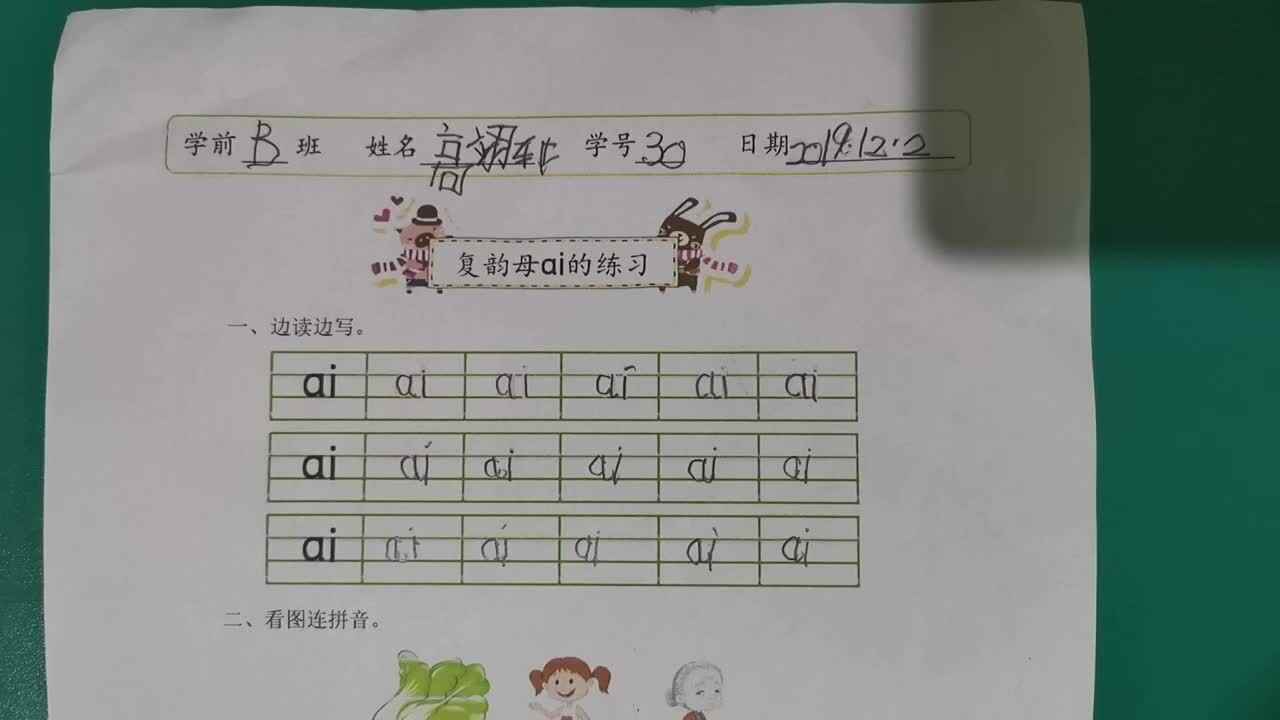 学前 B 班 姓名 高翊 学号 30 日期 2019.12.2
复韵母ai的练习
一、边读边写。
ai ai ai ai ai ai
ai ai ai ai ai ai
ai ai ai ai ai ai
二、看图连拼音。